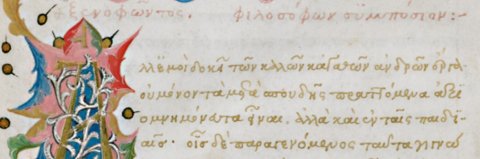 ξενοφῶντος. φιλοσόφων συμπόσιον:-
Ἀλλ' ἐμοὶ δοκεῖ τῶν καλῶν κἀγαθῶν ἀνδρῶν ἔργα
οὐ μόνον τὰ μετὰ σπουδῆς πραττόμενα ἀξιο
μνημόνευτα εἶναι, ἀλλὰ καὶ ἐν ταῖς παιδι
αῖς. οἷς δὲ παραγενόμενος ταῦτα γινώ